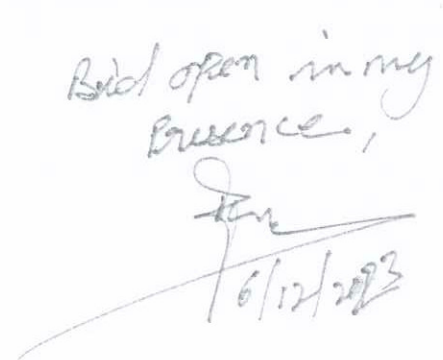 Bid open in my
Presence,
6/12/2023